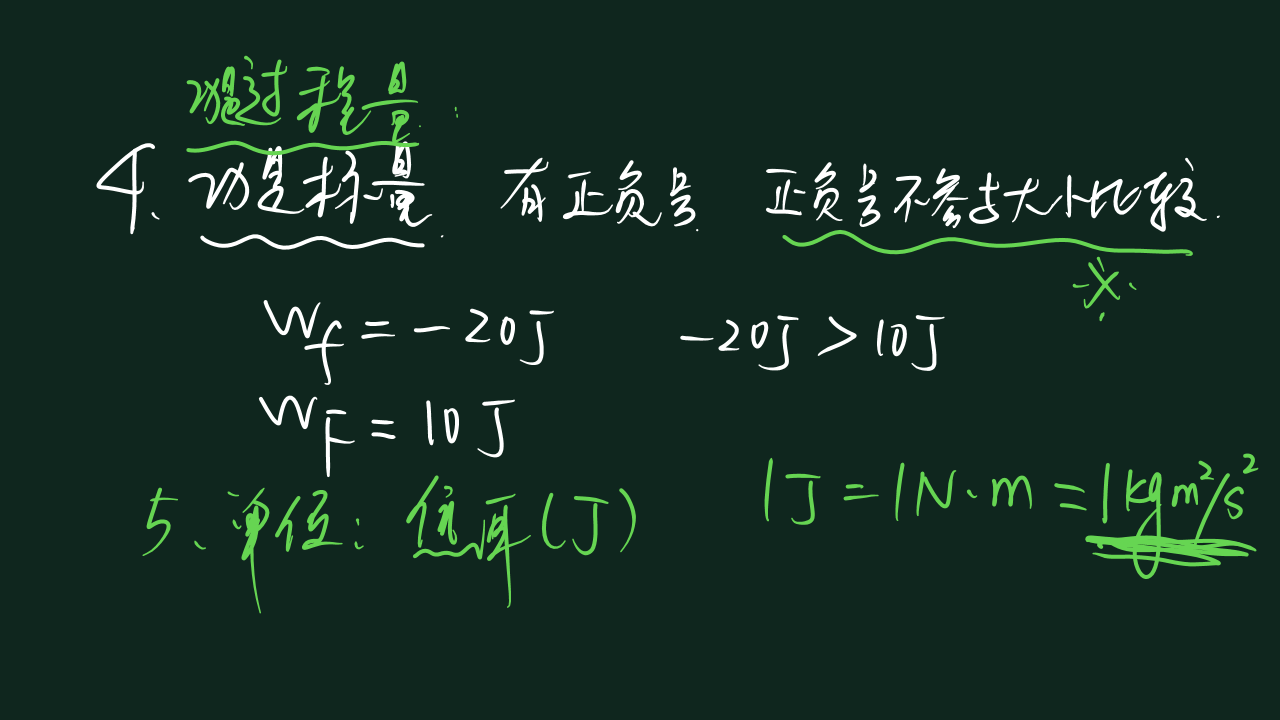 功是过程量.
4、功是标量. 有正负号. 正负号不参与大小比较.
Wf = -20J -20J > 10J
WF = 10J
5、单位: 焦耳(J) 1J = 1N·m = 1kgm²/s²